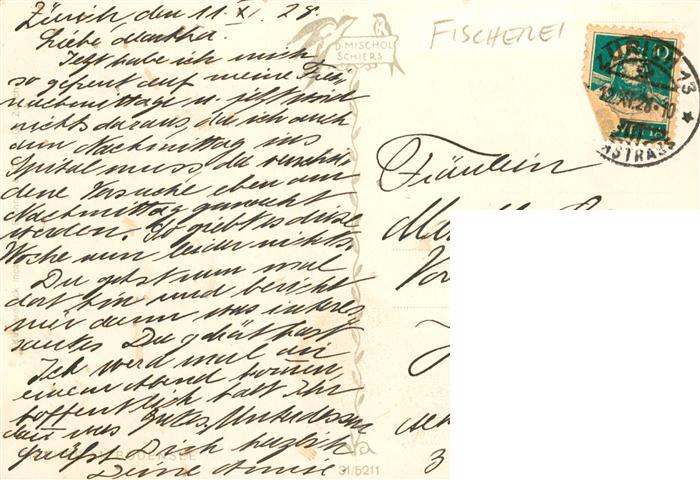 Zürich den 11. XI. 28.
Liebe Martha.
Jetzt habe ich mich
so gefreut auf meine Frei
nachmittage u. jetzt wird
nichts daraus da ich auch
am Nachmittag ins
Spital muss da verschie
dene Versuche eben am
Nachmittag gemacht
werden. So giebt es diese
Woche nun leider nichts.
Du gehst nun mal
dort hin und bericht
mir dann was interes
santes Du gehört hast
Ich werd mal an
einem Abend kommen
hoffentlich habt Ihr
dann was Gutes. Unterdessen
grüsst Dich herzlich
Deine
D. MISCHOL
SCHIERS
FISCHEREI
ZÜRICH 13
12.XI.28-10
10
Fräulein
31/5211
BODENSEE